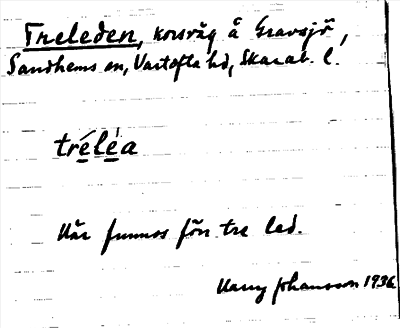 Treleden, korsväg å Gravsjö,
Sandhems sn, Vartofta hd, Skarab. l.
tréléa
Här funnos förr tre led.
Harry Johansson 1936